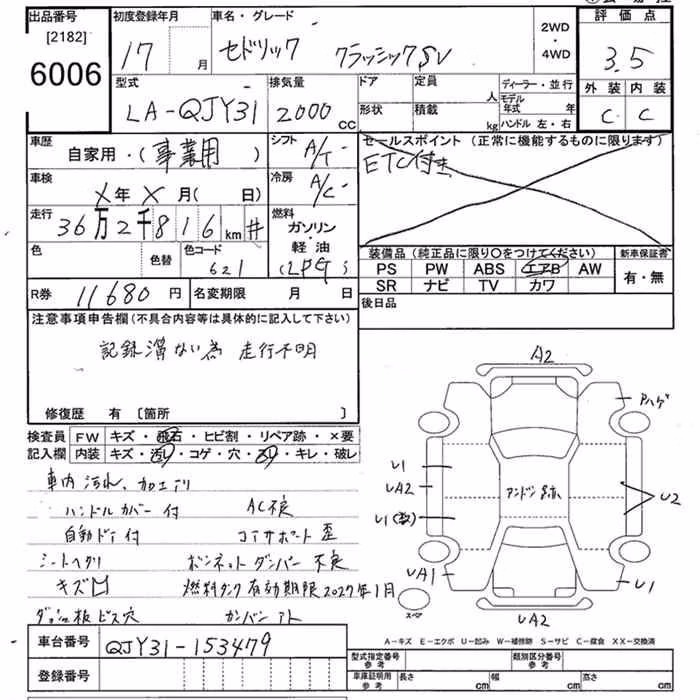 出品番号 初度登録年月 車名・グレード 2WD・4WD 評価点
[2182]
6006
17 月 セドリック クラシックSV 3.5
型式 排気量 ドア 定員 人 ディーラー・並行 外装 内装
LA-QJY31 2000 CC 形状 積載 kg モデル年式 年 C C
ハンドル 左・右
車歴 自家用・(事業用) シフト A/T セールスポイント (正常に機能するものに限ります)
ETC付き
車検 X年 X月(日) 冷房 A/C
走行 36万2千816km # 燃料 ガソリン・軽油 (LPG)
色 色替 色コード 621
装備品 (純正品に限り○をつけてください) 新車保証書
PS PW ABS エアB AW 有・無
SR ナビ TV カワ
R券 11680円 名変期限 月 日 後日品
注意事項申告欄(不具合内容等は具体的に記入して下さい)
走行不明
修復歴 有 [箇所 ]
検査員 FW キズ・飛石・ヒビ割・リペア跡・×要
記入欄 内装 キズ・汚レ・コゲ・穴・スレ・キレ・破レ
車内汚れ、
ハンドルカバー付 AC不良
自動ドア付 コアサポート歪
シートヘタリ ボンネットダンパー不良
キズ凹 燃料タンク有効期限2027年1月
ビス穴 カンバンアト
A2
アハゲ
U1
UA2
U1(数)
アンドン跡
U2
UA1
U1
スペア
UA2
A-キズ E-エクボ U-凹み W-補修跡 S-サビ C-腐食 XX-交換済
車台番号 QJY31-153479
登録番号
型式指定番号 参考 類別区分番号 参考
車庫証明用 参考 長さ cm 幅 cm 高さ cm